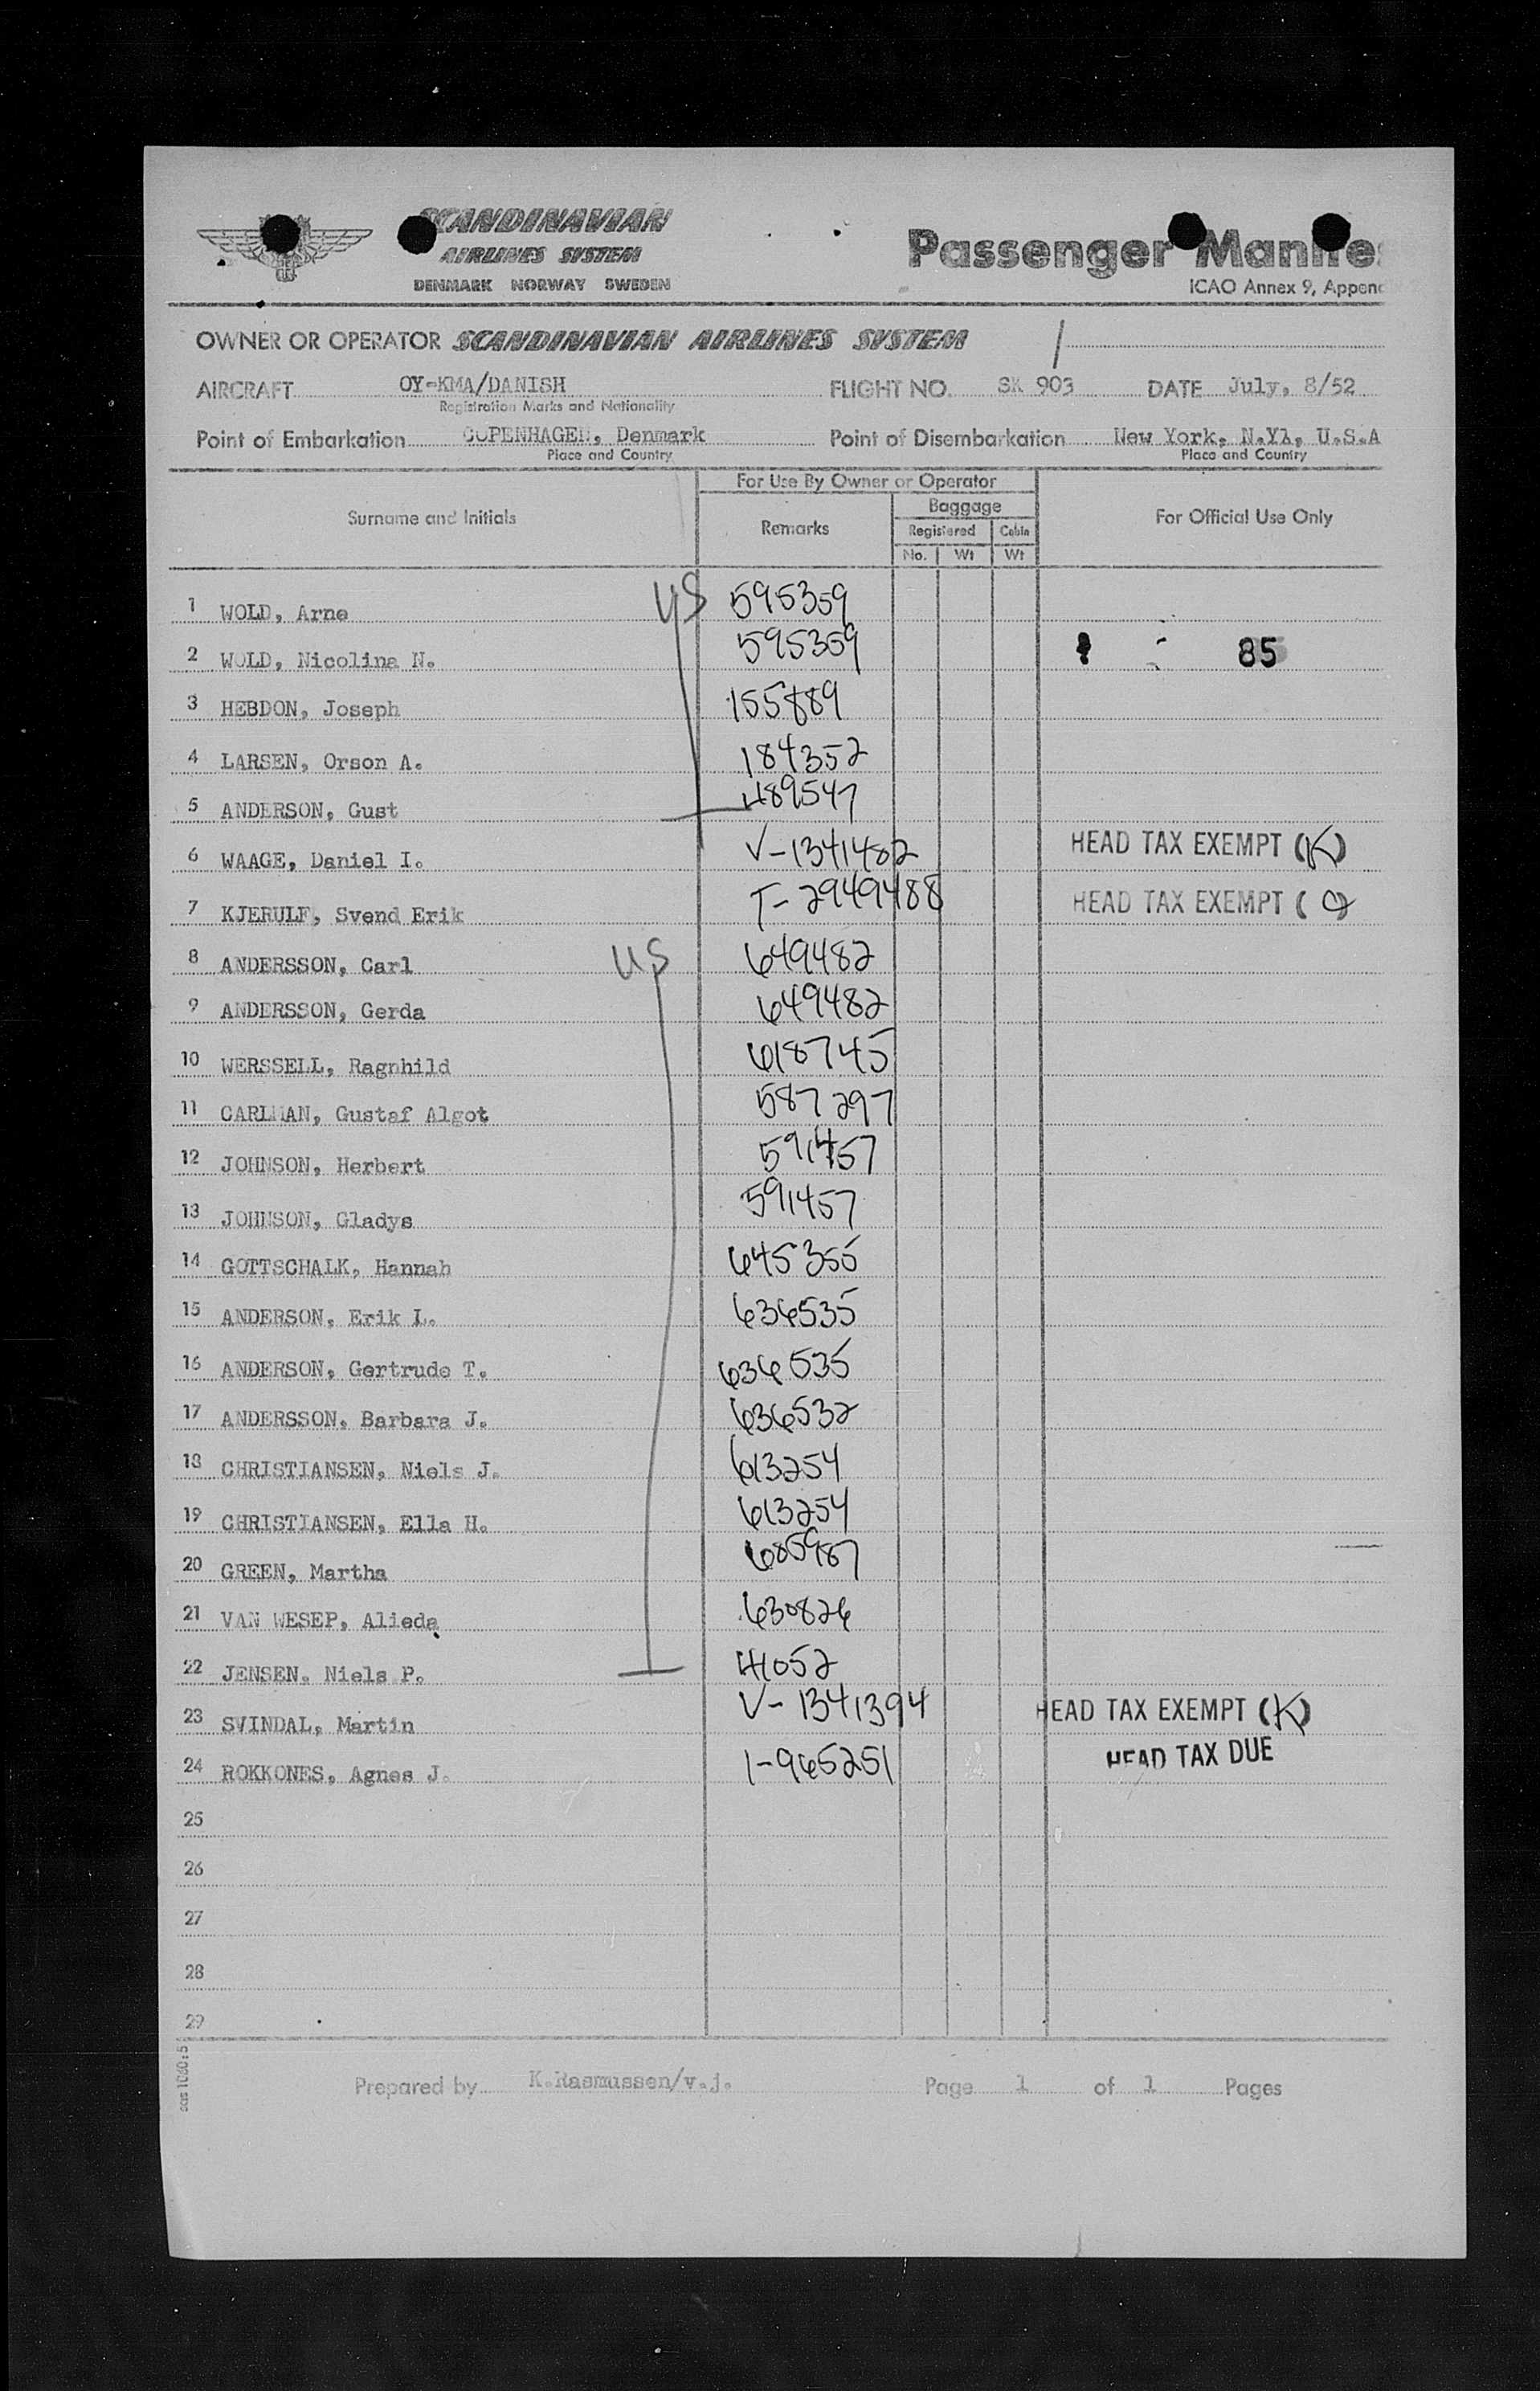 SCANDINAVIAN
AIRLINES SYSTEM
DENMARK NORWAY SWEDEN
Passenger Manife
ICAO Annex 9, Appen
OWNER OR OPERATOR SCANDINAVIAN AIRLINES SYSTEM
AIRCRAFT OY-KMA/DANISH FLIGHT NO. SK 903 DATE July, 8/52
Registration Marks and Nationality
Point of Embarkation COPENHAGEN, Denmark Point of Disembarkation New York, N.Y1, U.S.A
Place and Country Place and Country
For Use By Owner or Operator
Surname and Initials Remarks Baggage For Official Use Only
Registered Cabin
No. Wt Wt
1 WOLD, Arne US 595359
2 WOLD, Nicolina N. 595359 85
3 HEBDON, Joseph 155889
4 LARSEN, Orson A. 184352
5 ANDERSON, Gust 489547
6 WAAGE, Daniel I. V-1341482 HEAD TAX EXEMPT (K)
7 KJERULF, Svend Erik T-2949488 HEAD TAX EXEMPT (
8 ANDERSSON, Carl US 649482
9 ANDERSSON, Gerda 649482
10 WERSSELL, Ragnhild 618745
11 CARLMAN, Gustaf Algot 587297
12 JOHNSON, Herbert 591457
13 JOHNSON, Gladys 591457
14 GOTTSCHALK, Hannah 645355
15 ANDERSON, Erik L. 636535
16 ANDERSON, Gertrude T. 636535
17 ANDERSSON, Barbara J. 636532
18 CHRISTIANSEN, Niels J. 613254
19 CHRISTIANSEN, Ella H. 613254
20 GREEN, Martha 685987
21 VAN WESEP, Alieda 630826
22 JENSEN, Niels P. 41052
23 SVINDAL, Martin V-1341394 HEAD TAX EXEMPT (K)
24 ROKKONES, Agnes J. 1-965251 HEAD TAX DUE
25
26
27
28
29
sas 1060:5
Prepared by K.Rasmussen/v.j. Page 1 of 1 Pages